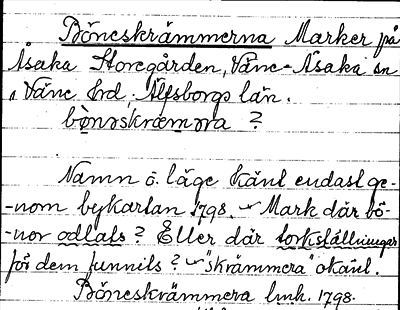 Böneskrämmerna Marker på
Åsaka Storegården, Väne-Åsaka sn
" Väne hd, Älfsborgs län.
bønəskræməra ?
Namn o. läge känt endast ge-
-nom bykartan 1798. Mark där bö-
-nor odlats? Eller där torkställningar
för dem funnits? "skrämmera" okänt.
Böneskrämmera lmh. 1798.